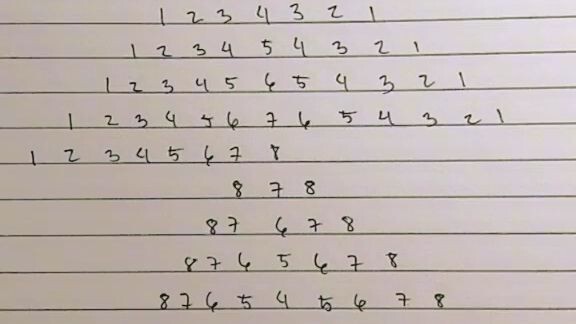 1 2 3 4 3 2 1
1 2 3 4 5 4 3 2 1
1 2 3 4 5 6 5 4 3 2 1
1 2 3 4 5 6 7 6 5 4 3 2 1
1 2 3 4 5 6 7 8
8 7 8
8 7 6 7 8
8 7 6 5 6 7 8
8 7 6 5 4 5 6 7 8